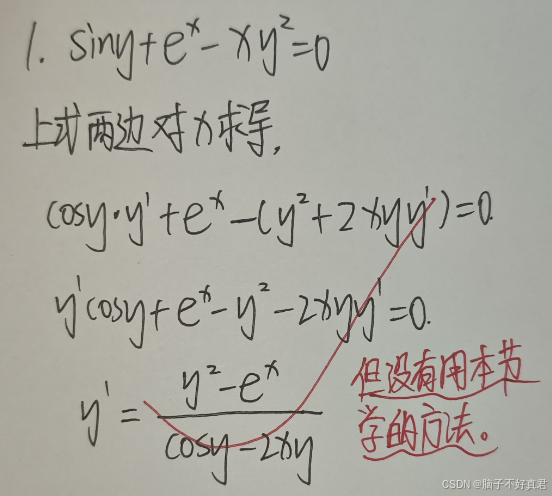 1. siny+eˣ-xy²=0
上式两边对x求导,
cosy·y'+eˣ-(y²+2xyy')=0.
y'cosy+eˣ-y²-2xyy'=0.
y'=(y²-eˣ)/(cosy-2xy)
但没有用本节
学的方法。
CSDN @脑子不好真君